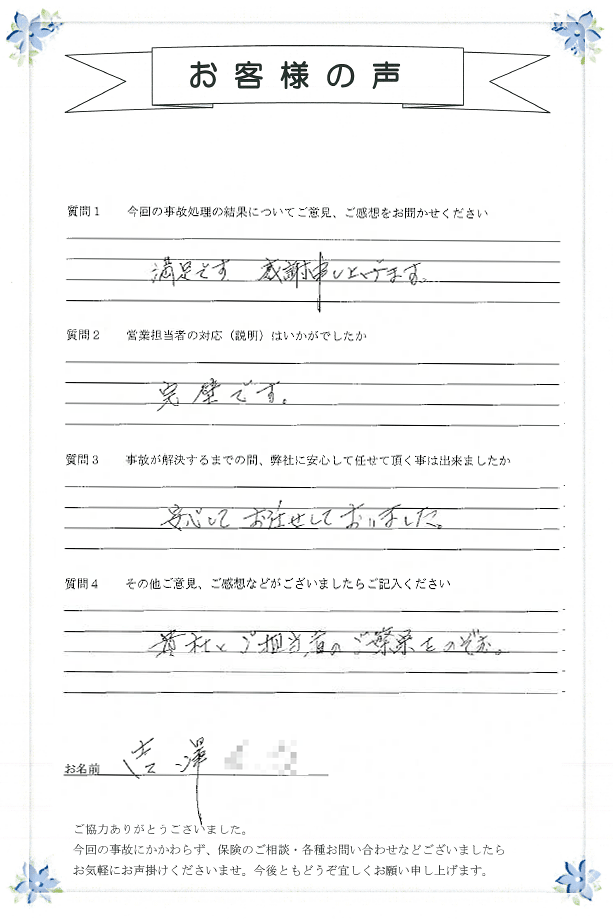 お客様の声
質問１ 今回の事故処理の結果についてご意見、ご感想をお聞かせください
満足です 感謝申し上げます。
質問２ 営業担当者の対応（説明）はいかがでしたか
完璧です。
質問３ 事故が解決するまでの間、弊社に安心して任せて頂く事は出来ましたか
安心して お任せして おりました。
質問４ その他ご意見、ご感想などがございましたらご記入ください
貴社と ご担当者の ご繁栄をのぞむ。
お名前 吉澤
ご協力ありがとうございました。
今回の事故にかかわらず、保険のご相談・各種お問い合わせなどございましたら
お気軽にお声掛けくださいませ。今後ともどうぞ宜しくお願い申し上げます。